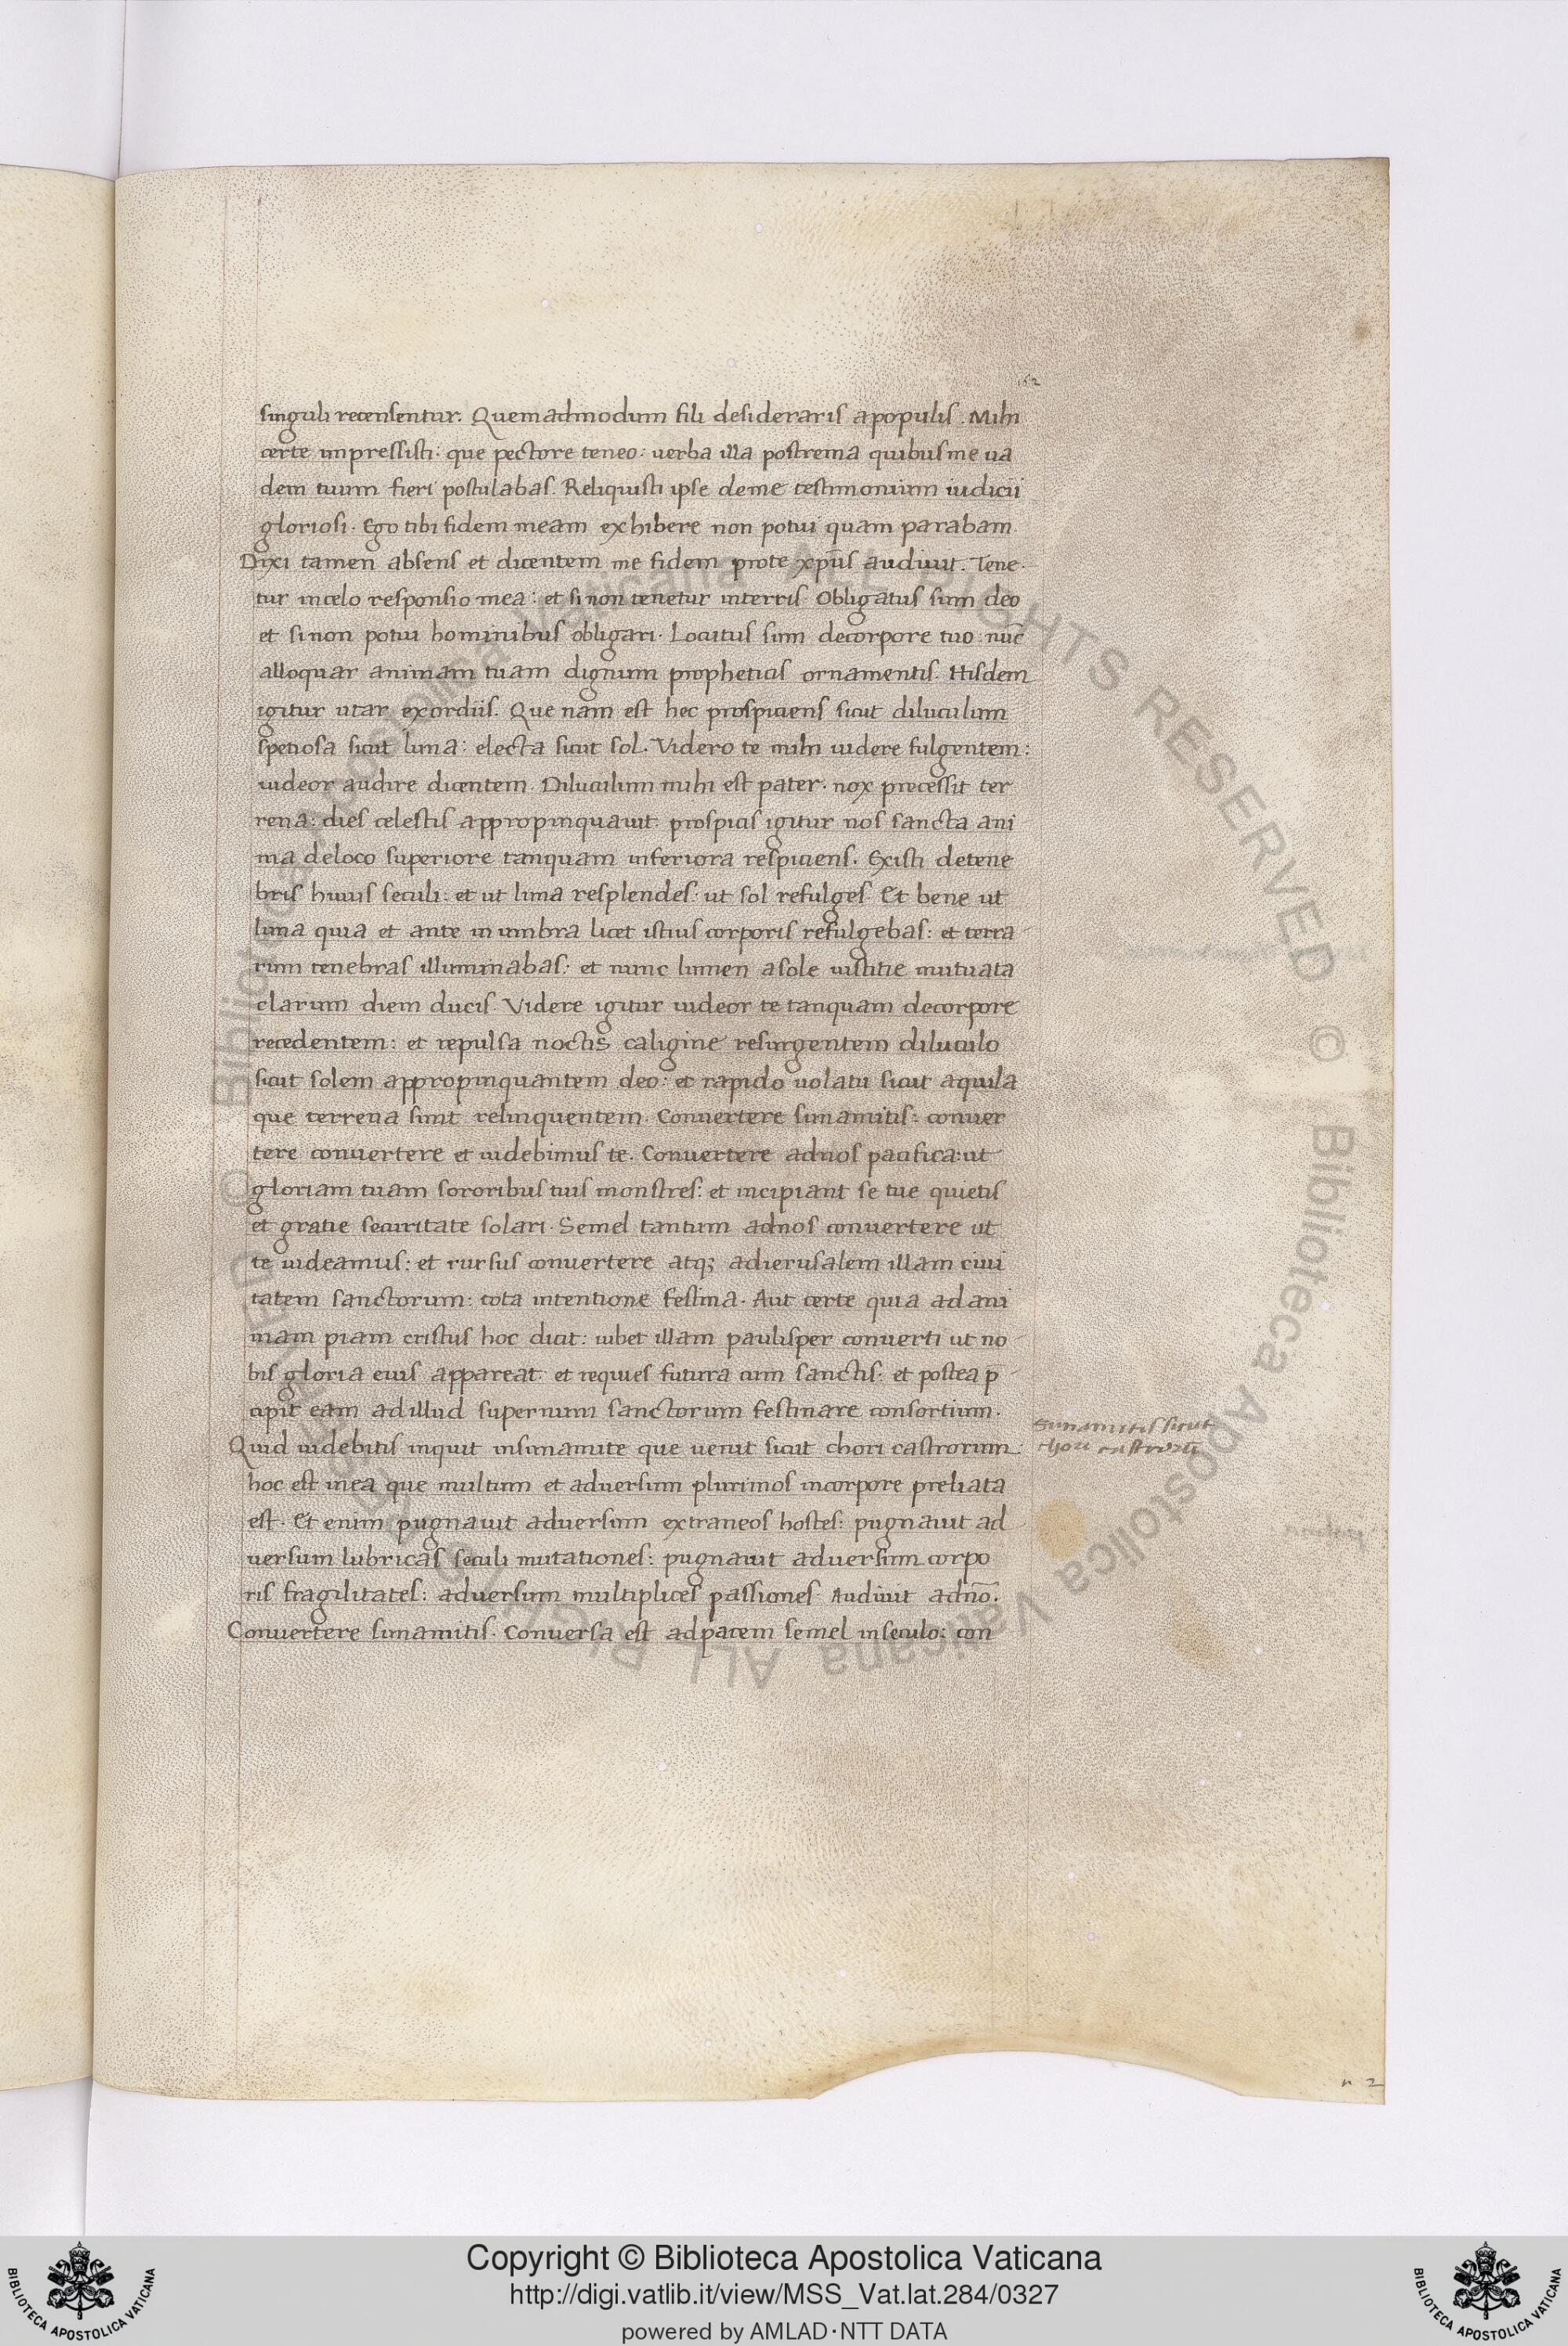 162
singuli recensentur. Quemadmodum fili desideraris apopulis. Mihi
certe impressisti: que pectore teneo: verba illa postrema quibusme va
dem tuum fieri postulabas. Reliquisti ipse deme testimonium iudicii
gloriosi. Ego tibi fidem meam exhibere non potui quam parabam.
Dixi tamen absens et dicentem me fidem prote xp̅us audivit. Tene
tur incelo responsio mea: et sinon tenetur interris. Obligatus sum deo
et sinon potui hominibus obligari. Locutus sum decorpore tuo: nu̅c
alloquar animam tuam dignum propheticis ornamentis. Hisdem
igitur utar exordiis. Que nam est hec prospiciens sicut diluculum
spetiosa sicut luna: electa sicut sol. Videro te mihi videre fulgentem:
videor audire dicentem. Diluculum mihi est pater. nox precessit ter
rena: dies celestis appropinquavit: prospicis igitur nos sancta ani
ma deloco superiore tanquam inferiora respiciens. Existi detene
bris huius seculi: et ut luna resplendes: ut sol refulges. Et bene ut
luna quia et ante in umbra licet istius corporis refulgebas: et terra
rum tenebras illuminabas: et nunc lumen asole iustitie mutuata
clarum diem ducis. Videre igitur videor te tanquam decorpore
recedentem: et repulsa noctis caligine resurgentem diluculo
sicut solem appropinquantem deo: et rapido volatu sicut aquila
que terrena sunt relinquentem. Convertere sunamitis: conver
tere convertere et videbimus te. Convertere adnos pacifica: ut
gloriam tuam sororibus tuis monstres: et incipiant se tue quietis
et gratie securitate solari. Semel tantum adnos convertere ut
te videamus: et rursus convertere atq; adierusalem illam civi
tatem sanctorum: tota intentione festina. Aut certe quia adani
mam piam cristus hoc dicit: iubet illam paulisper converti ut no
bis gloria eius appareat: et requies futura cum sanctis: et postea p̅
cipit eam adillud supernum sanctorum festinare consortium.
Quid videbitis inquit insunamite que venit sicut chori castrorum:
hoc est inea que multum et adversum plurimos incorpore preliata
est. Et enim pugnavit adversum extraneos hostes: pugnavit ad
versum lubricas seculi mutationes: pugnavit adversum corpo
ris fragilitates: adversum multiplices passiones. Audivit adn̅o.
Convertere sunamitis. Conversa est adpacem semel inseculo: con
Sunamitis sicut
chori castroru̅
n 2
© Biblioteca Apostolica Vaticana ALL RIGHTS RESERVED © Biblioteca Apostolica Vaticana ALL RIGHTS RESERVED
BIBLIOTECA APOSTOLICA VATICANA
Copyright © Biblioteca Apostolica Vaticana
http://digi.vatlib.it/view/MSS_Vat.lat.284/0327
powered by AMLAD·NTT DATA
BIBLIOTECA APOSTOLICA VATICANA